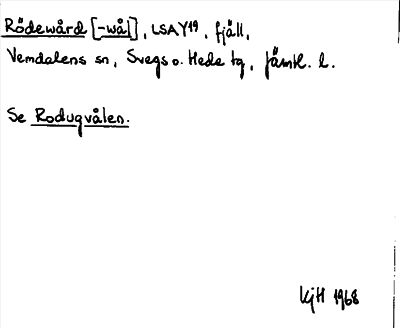 Rödewård [-wål], LSAY19, fjäll,
Vemdalens sn, Svegs o. Hede tg, Jämtl. l.
Se Rodugvålen.
KjH 1968